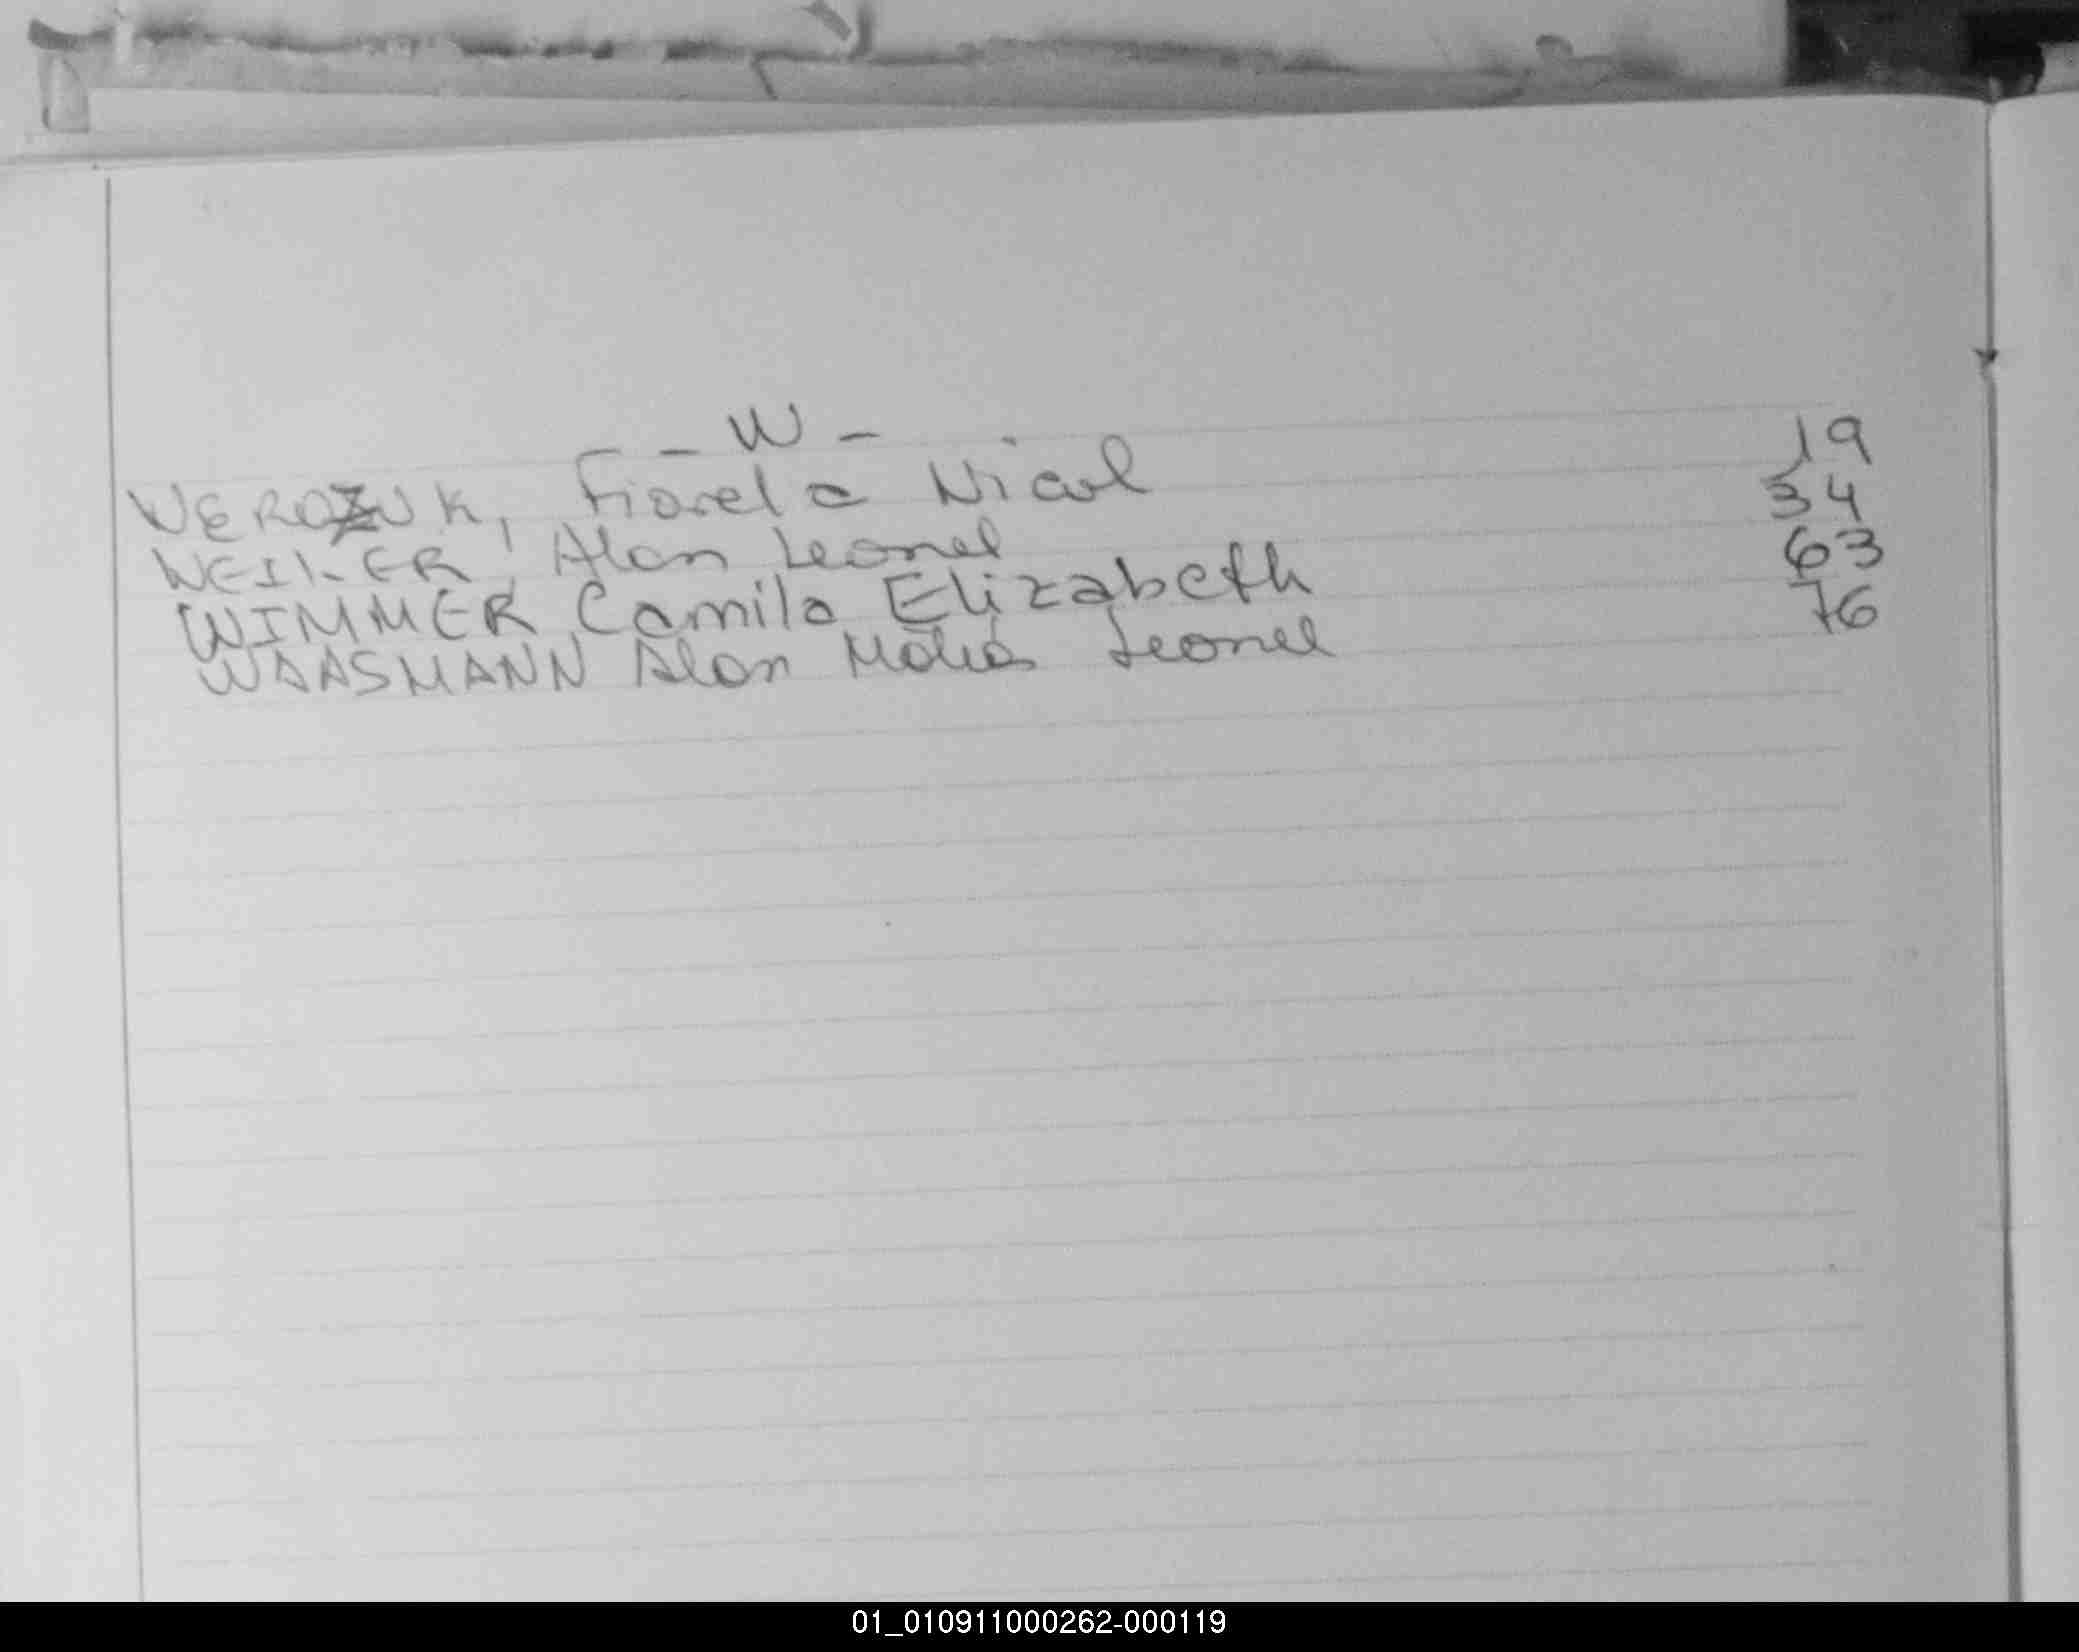 - W -
WEROZUK, Fiorela Nicol 19
WEILER, Alan Leonel 34
WIMMER, Camila Elizabeth 63
WAASMANN Alan Matías Leonel 76
01_010911000262-000119